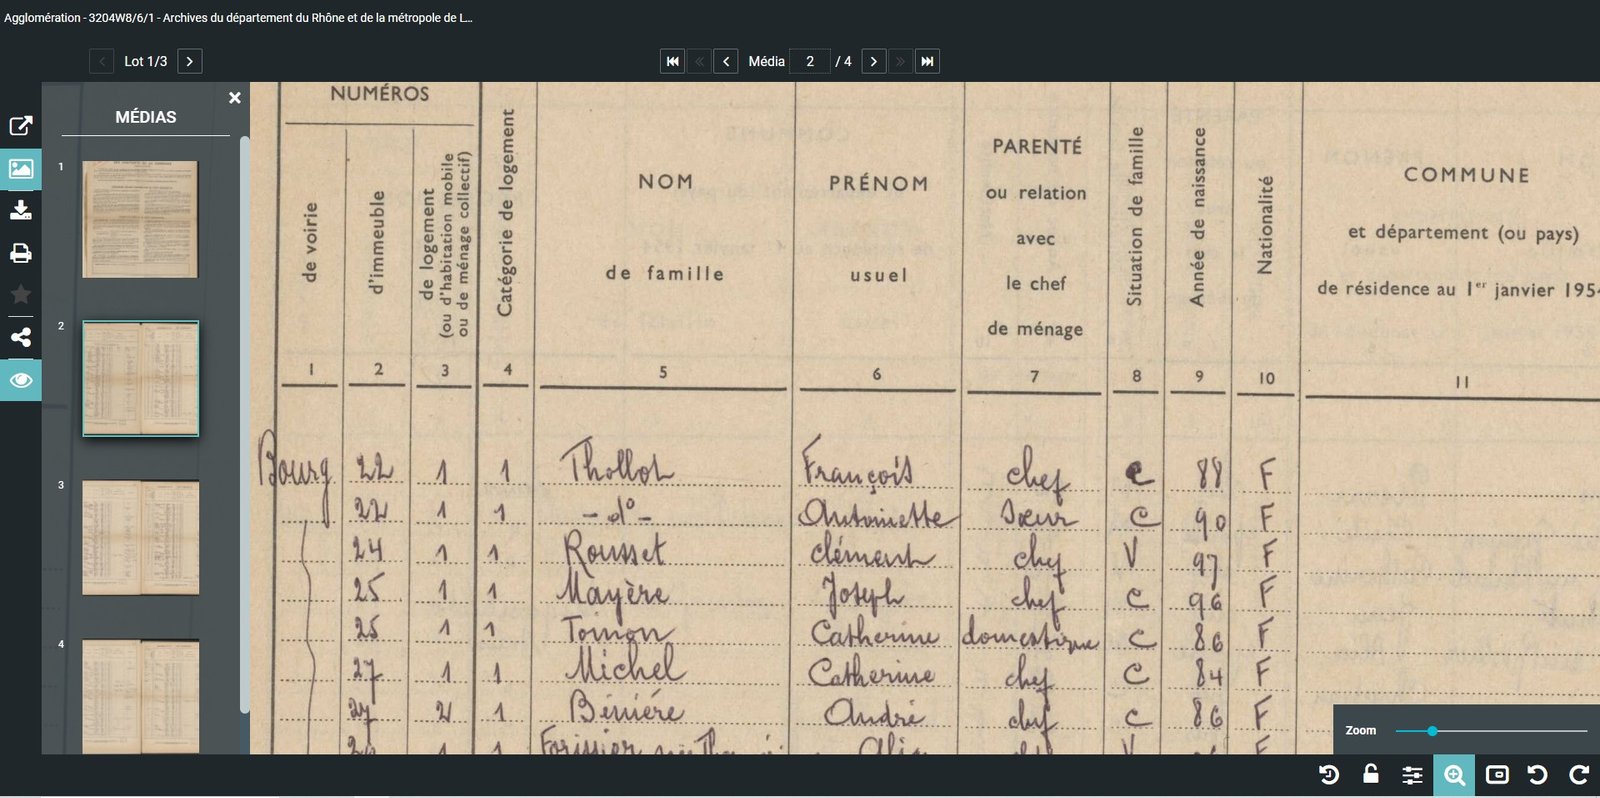 Agglomération - 3204W8/6/1 - Archives du département du Rhône et de la métropole de L...
Lot 1/3
Média 2 / 4
MÉDIAS
1
2
3
4
NUMÉROS
de voirie
d'immeuble
de logement
(ou d'habitation mobile
ou de ménage collectif)
Catégorie de logement
NOM
de famille
PRÉNOM
usuel
PARENTÉ
ou relation
avec
le chef
de ménage
Situation de famille
Année de naissance
Nationalité
COMMUNE
et département (ou pays)
de résidence au 1er janvier 195
1 2 3 4 5 6 7 8 9 10 11
Bourg 22 1 1 Thollot François chef C 88 F
22 1 1 - d° - Antoinette Sœur C 90 F
24 1 1 Rousset Clément chef V 97 F
25 1 1 Mayère Joseph chef C 96 F
25 1 1 Tomon Catherine domestique C 86 F
27 1 1 Michel Catherine chef C 84 F
27 2 1 Béniére André chef C 86 F
1 1 Forissier V F
Zoom